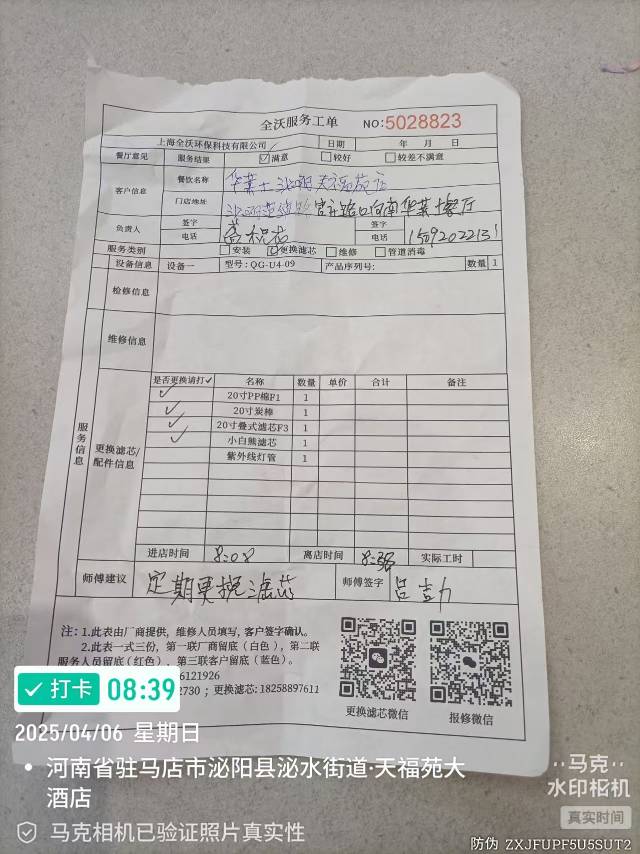 全沃服务工单 NO:5028823
上海全沃环保科技有限公司 日期 年 月 日
餐厅意见 服务结果 ☑满意 □较好 □较差不满意
客户信息 餐饮名称 华莱士泌阳天福苑店
门店地址 官庄路口向南华莱士餐厅
负责人 签字 签字
电话 电话
服务类别 □安装 ☑更换滤芯 □维修 □管道消毒
设备信息 设备一 型号:QG-U4-09 产品序列号: 数量 1
检修信息
维修信息
服务信息
更换滤芯/配件信息
是否更换请打✓ 名称 数量 单价 合计 备注
✓ 20寸PP棉F1 1
✓ 20寸炭棒 1
✓ 20寸叠式滤芯F3 1
✓ 小白熊滤芯 1
紫外线灯管 1
进店时间 8:08 离店时间 8:38 实际工时
师傅建议 定期更换滤芯 师傅签字 吕志力
注:1.此表由厂商提供,维修人员填写,客户签字确认。
2.此表一式三份,第一联厂商留底(白色),第二联
服务人员留底(红色),第三联客户留底(蓝色)。
6121926
2730 ;更换滤芯:18258897611
更换滤芯微信 报修微信
打卡 08:39
2025/04/06 星期日
河南省驻马店市泌阳县泌水街道·天福苑大
酒店
马克相机已验证照片真实性
马克
水印相机
真实时间
防伪 ZXJFUPF5U5SUT2